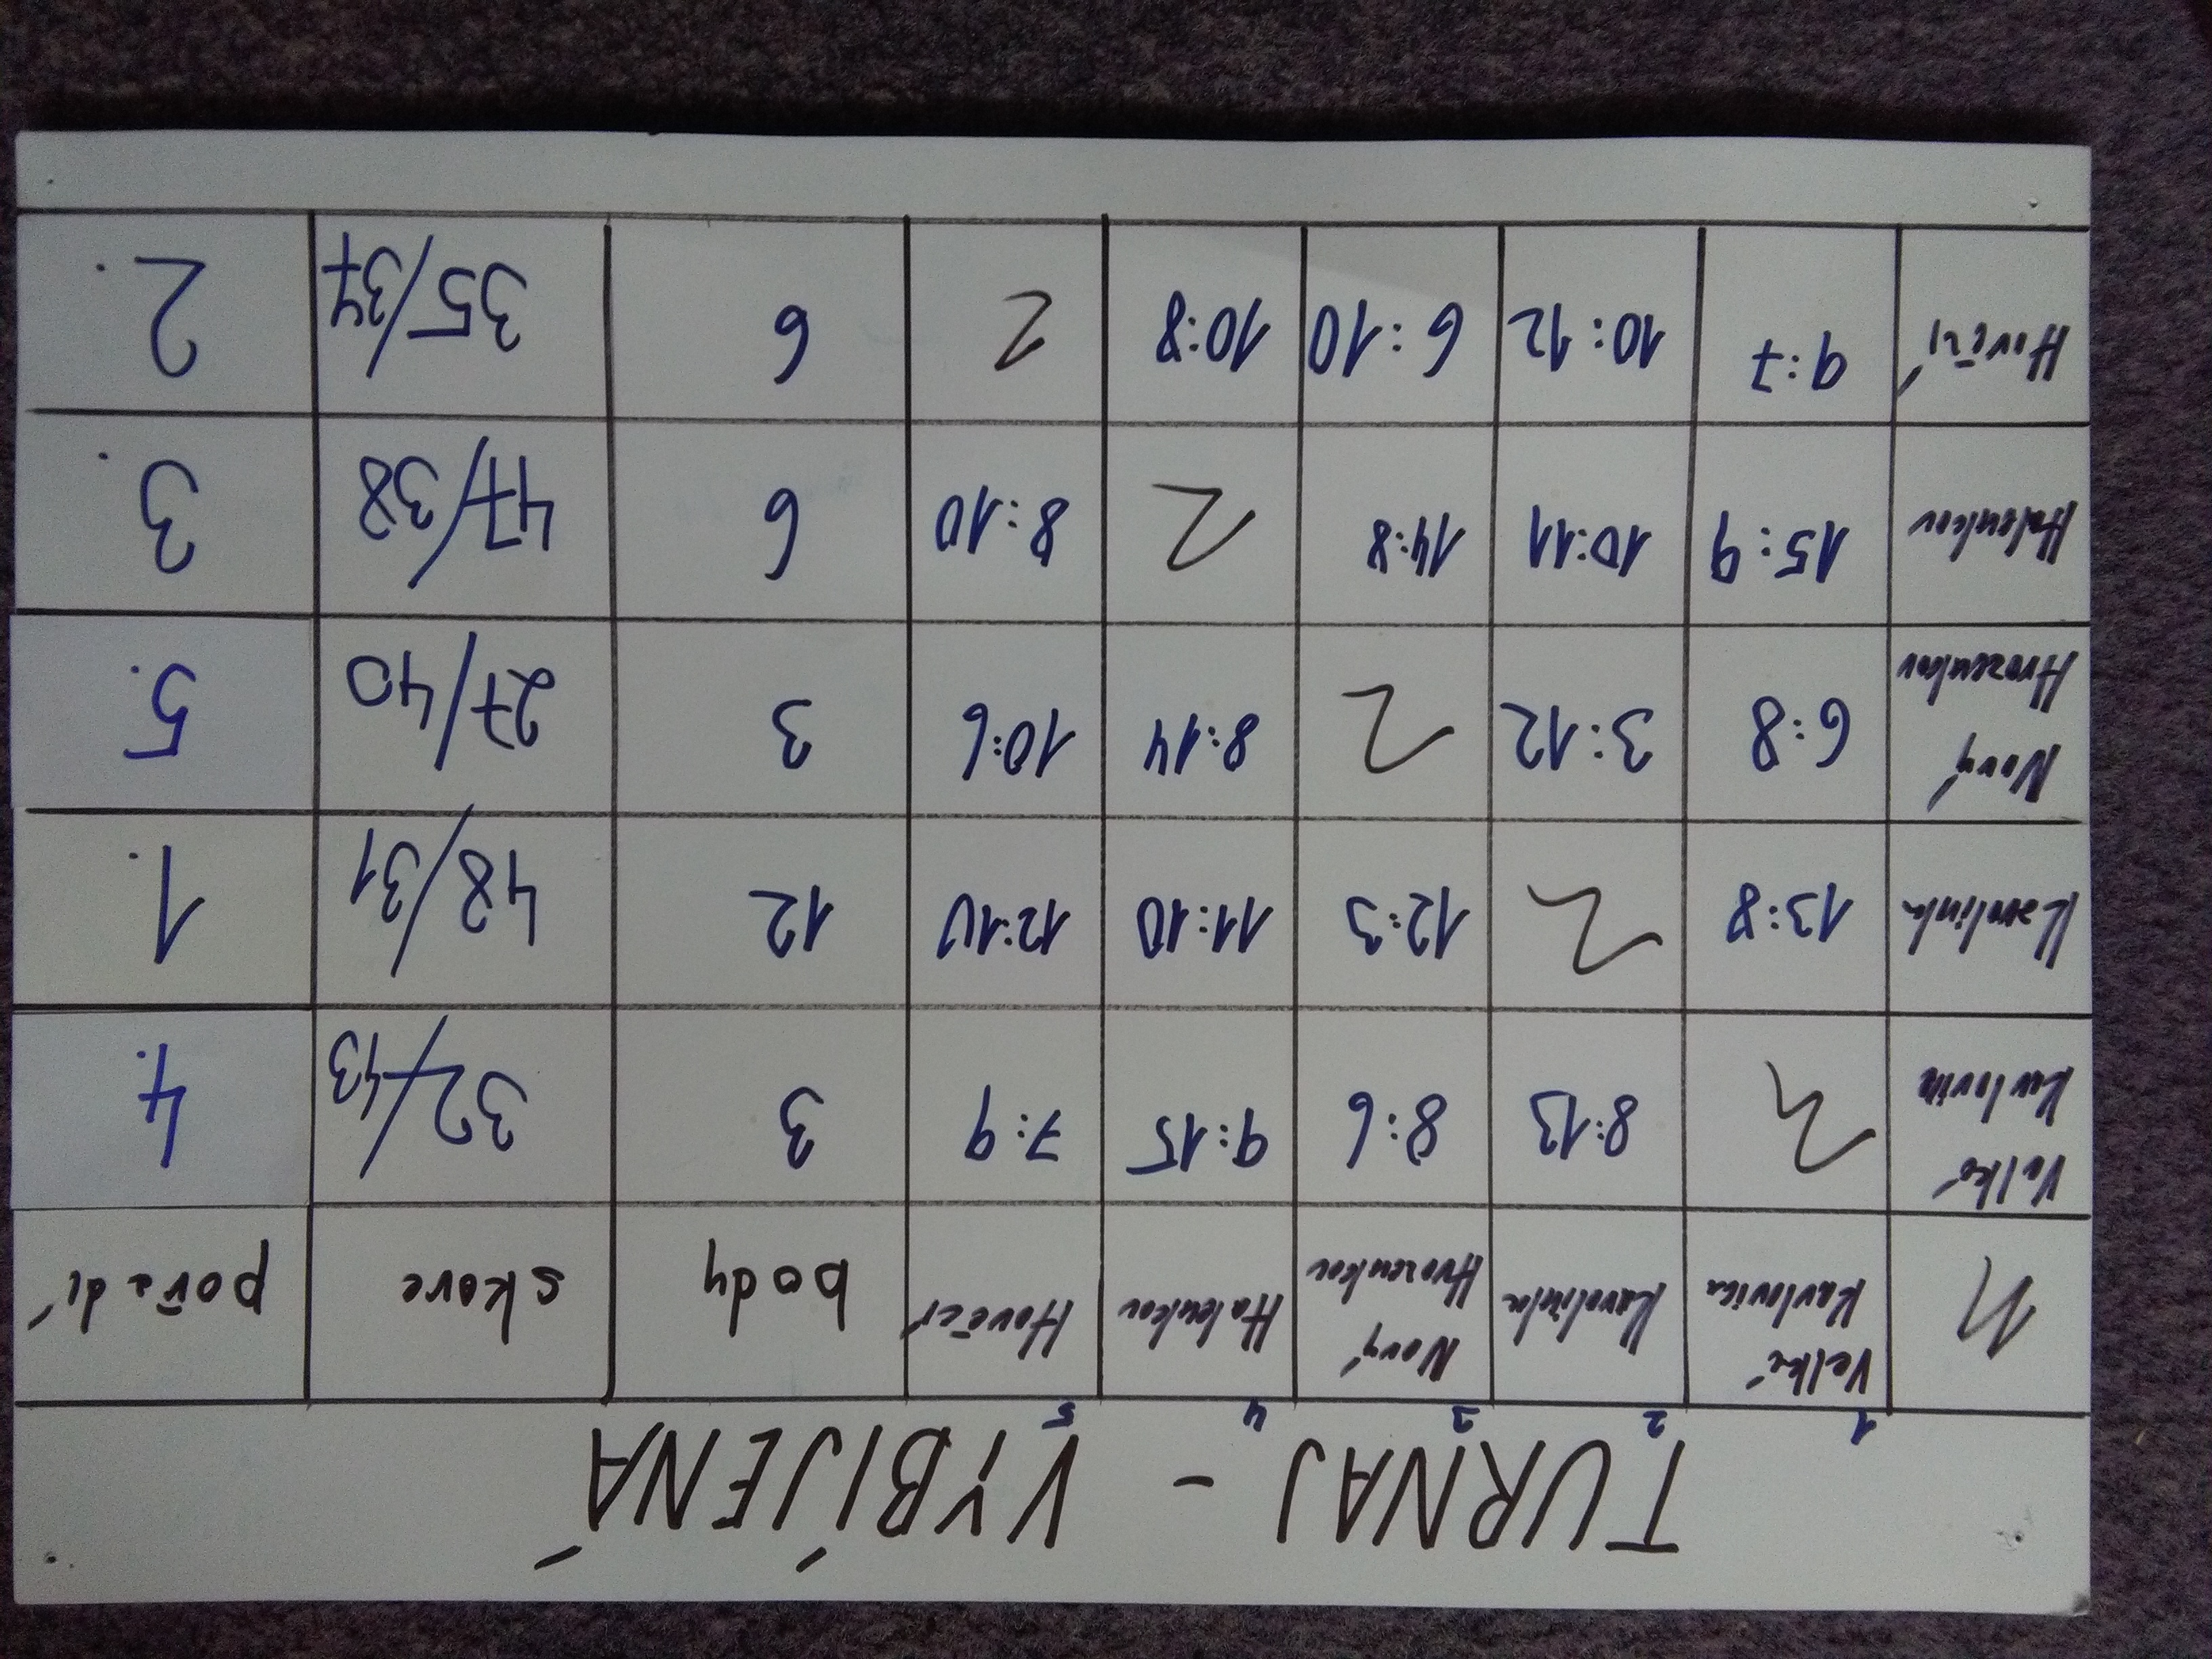 TURNAJ - VYBÍJENÁ
1 2 3 4 5
Velké Karlovice Karolinka Nový Hrozenkov Halenkov Hovězí body skore pořadí
Velké Karlovice 8:13 8:6 9:15 7:9 3 32/43 4.
Karolinka 13:8 12:3 11:10 12:10 12 48/31 1.
Nový Hrozenkov 6:8 3:12 8:14 10:6 3 27/40 5.
Halenkov 15:9 10:11 14:8 8:10 6 47/38 3.
Hovězí 9:7 10:12 6:10 10:8 6 35/37 2.